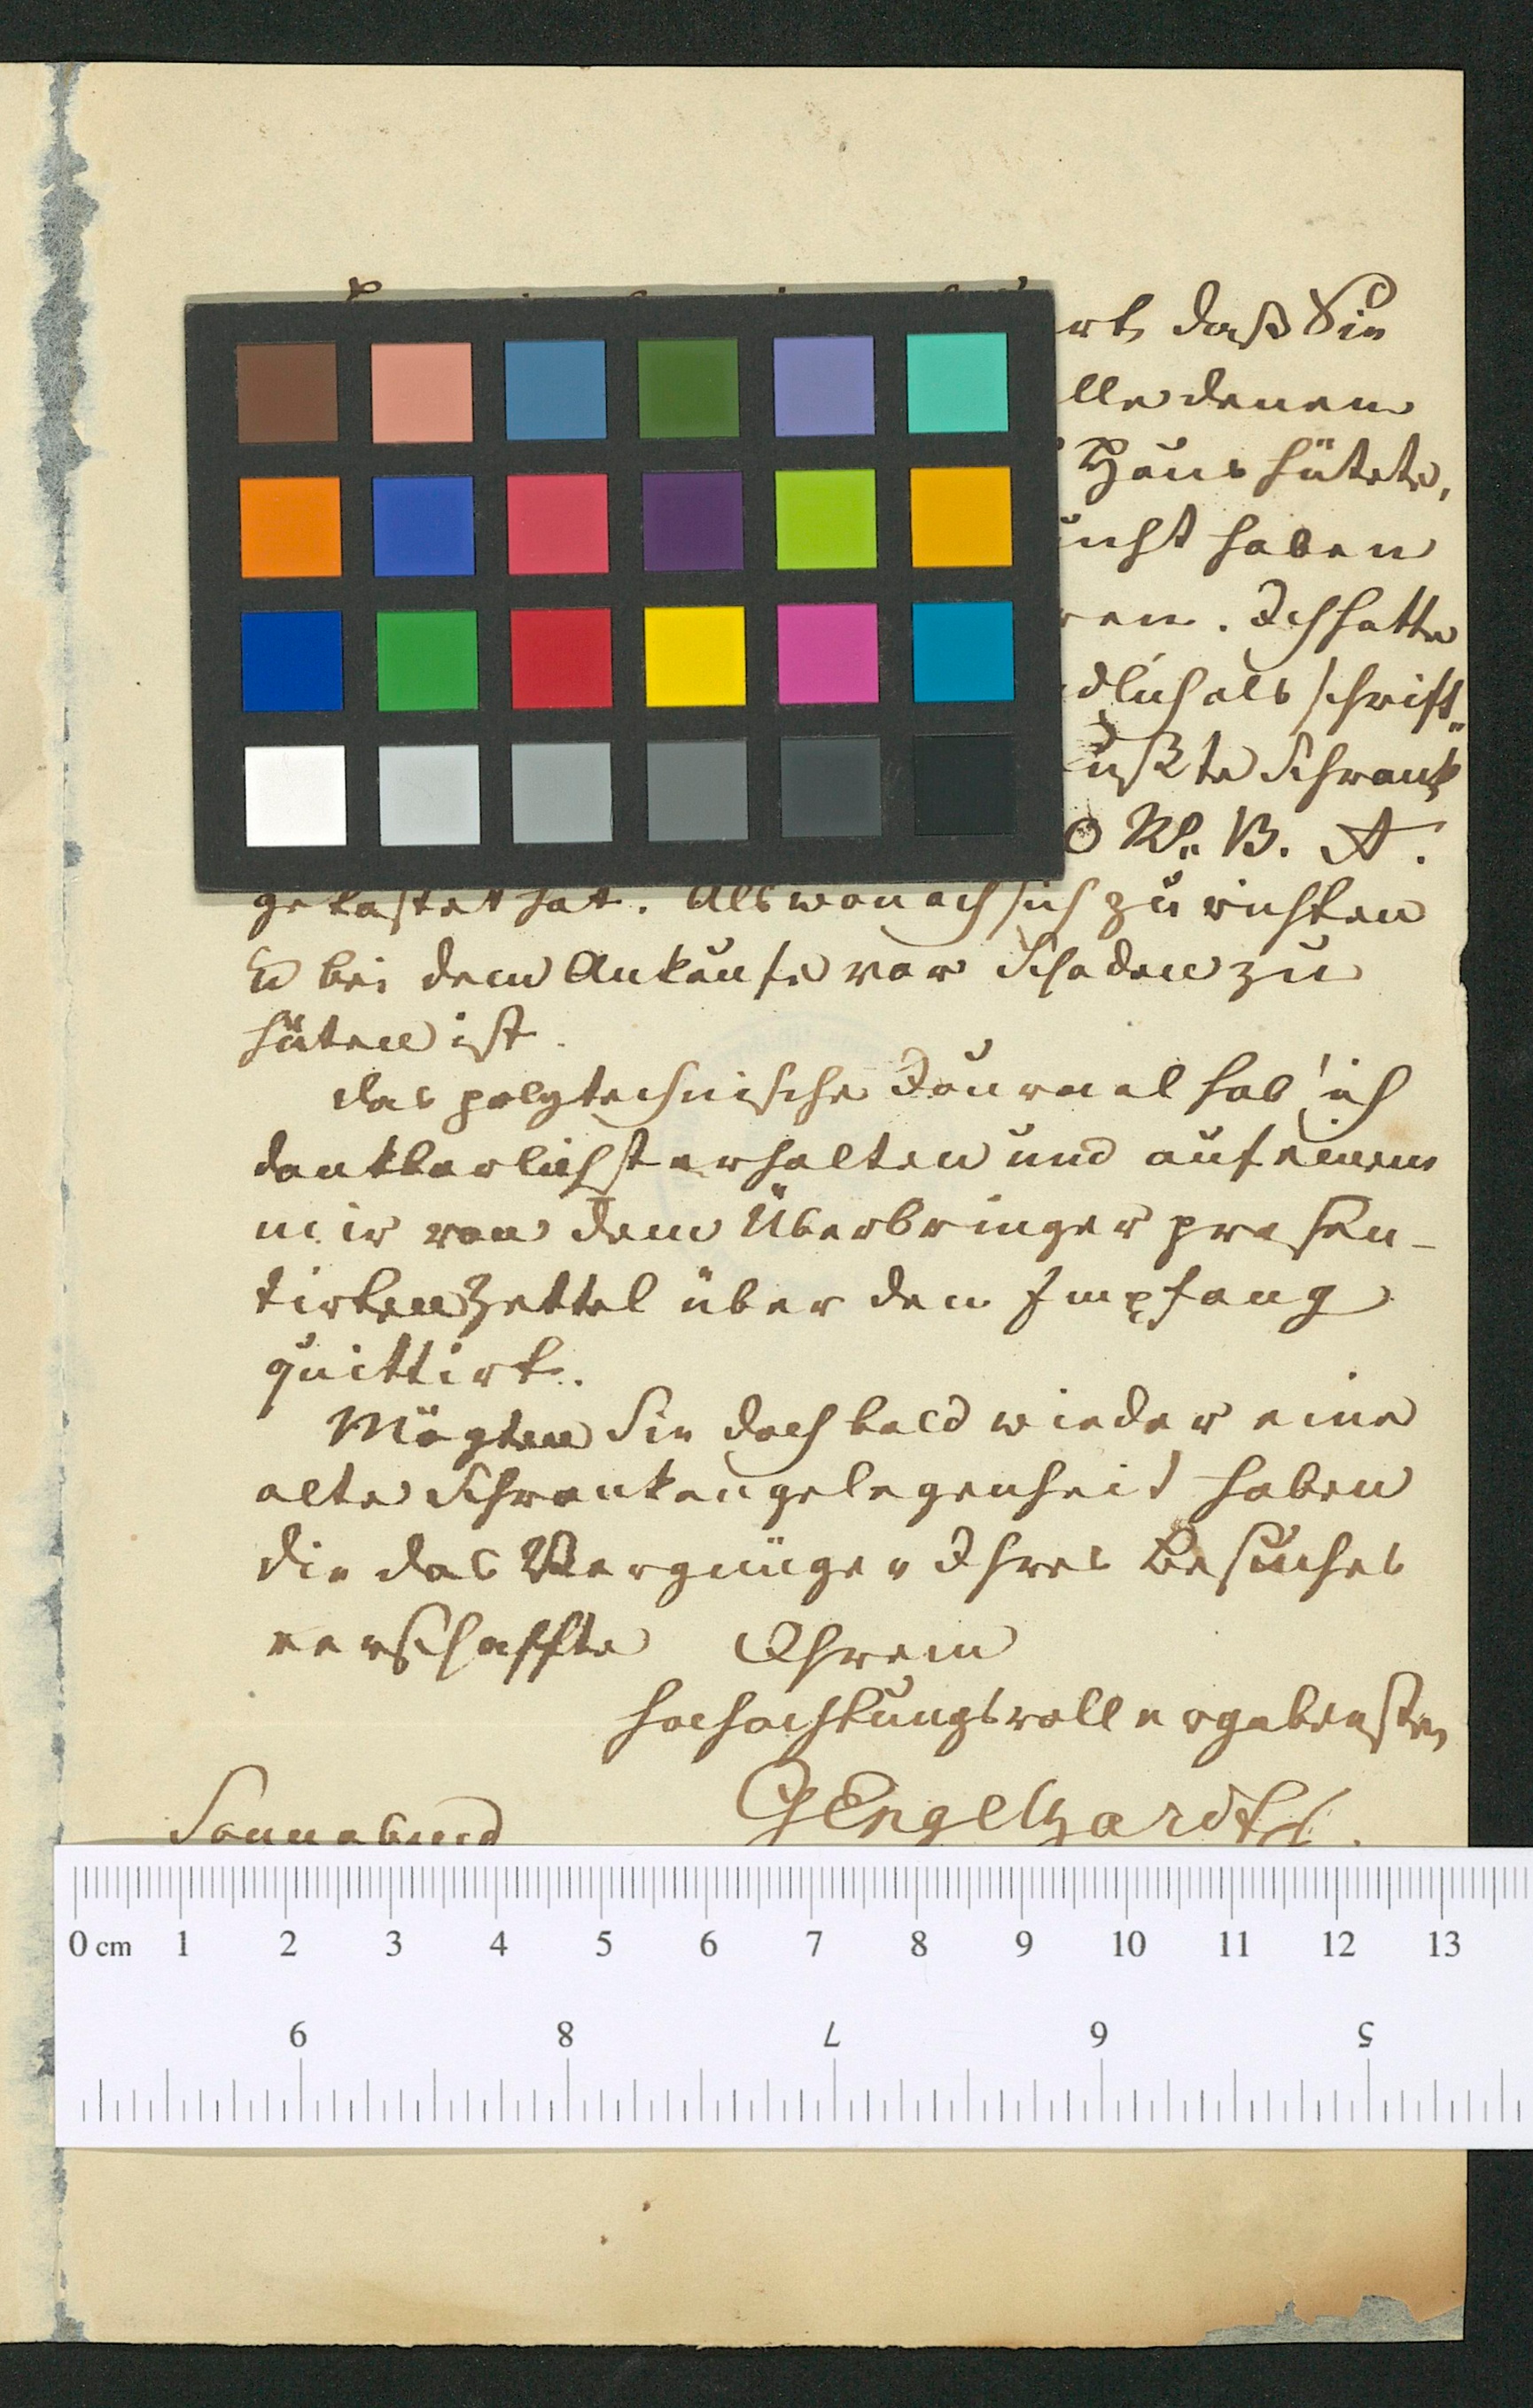 daß Sie
denen
Haus hütete,
haben
Ich hatte
als schrift„
Schrank
W. B. A.
gekostet hat. Als wonach sich zu richten
u bei dem Ankaufe vor Schaden zu
hüten ist.
Das polytechnische Journal hab' ich
dankbarlichst erhalten und auf einem
mir von dem Überbringer presen-
tirten Zettel über den Empfang
quittirt.
Mögten Sie doch bald wieder eine
alte Schrankangelegenheit haben
die das Vergnügen Ihres Besuches
verschaffte Ihrem
hochachtungsvoll ergebensten
Sonnabend GEngelhardt
0 cm 1 2 3 4 5 6 7 8 9 10 11 12 13
9 8 7 6 5